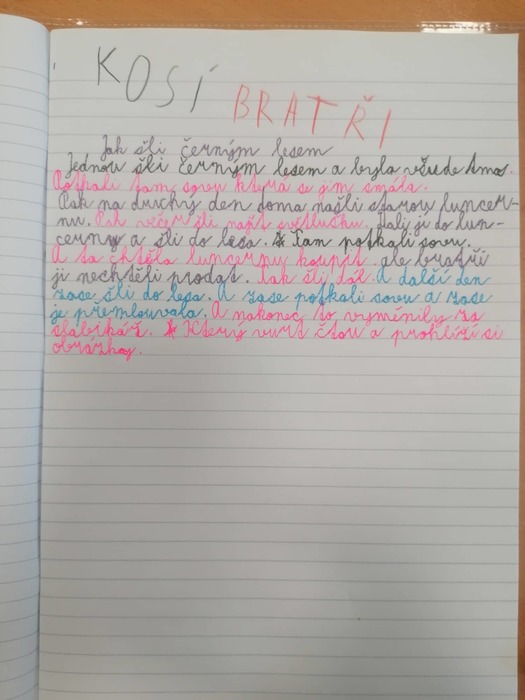 KOSÍ BRATŘI
Jak šli černým lesem
Jednou šli černým lesem a byla všude tma.
Potkali tam sovu která se jim smála.
Pak na druhý den doma našli starou luncer-
nu. Pak večer šli najít světlušku. dali ji do lun-
cerny a šli do lesa. Tam potkali sovu.
A ta chtěla luncernu koupit. ale bratři
ji nechtěli prodat. Tak šli dál. A další den
zase šli do lesa. A zase potkali sovu a zase
je přemlouvala. A nakonec to vyměnily za
slabikář. Který furt čtou a prohlíží si
obrázky.